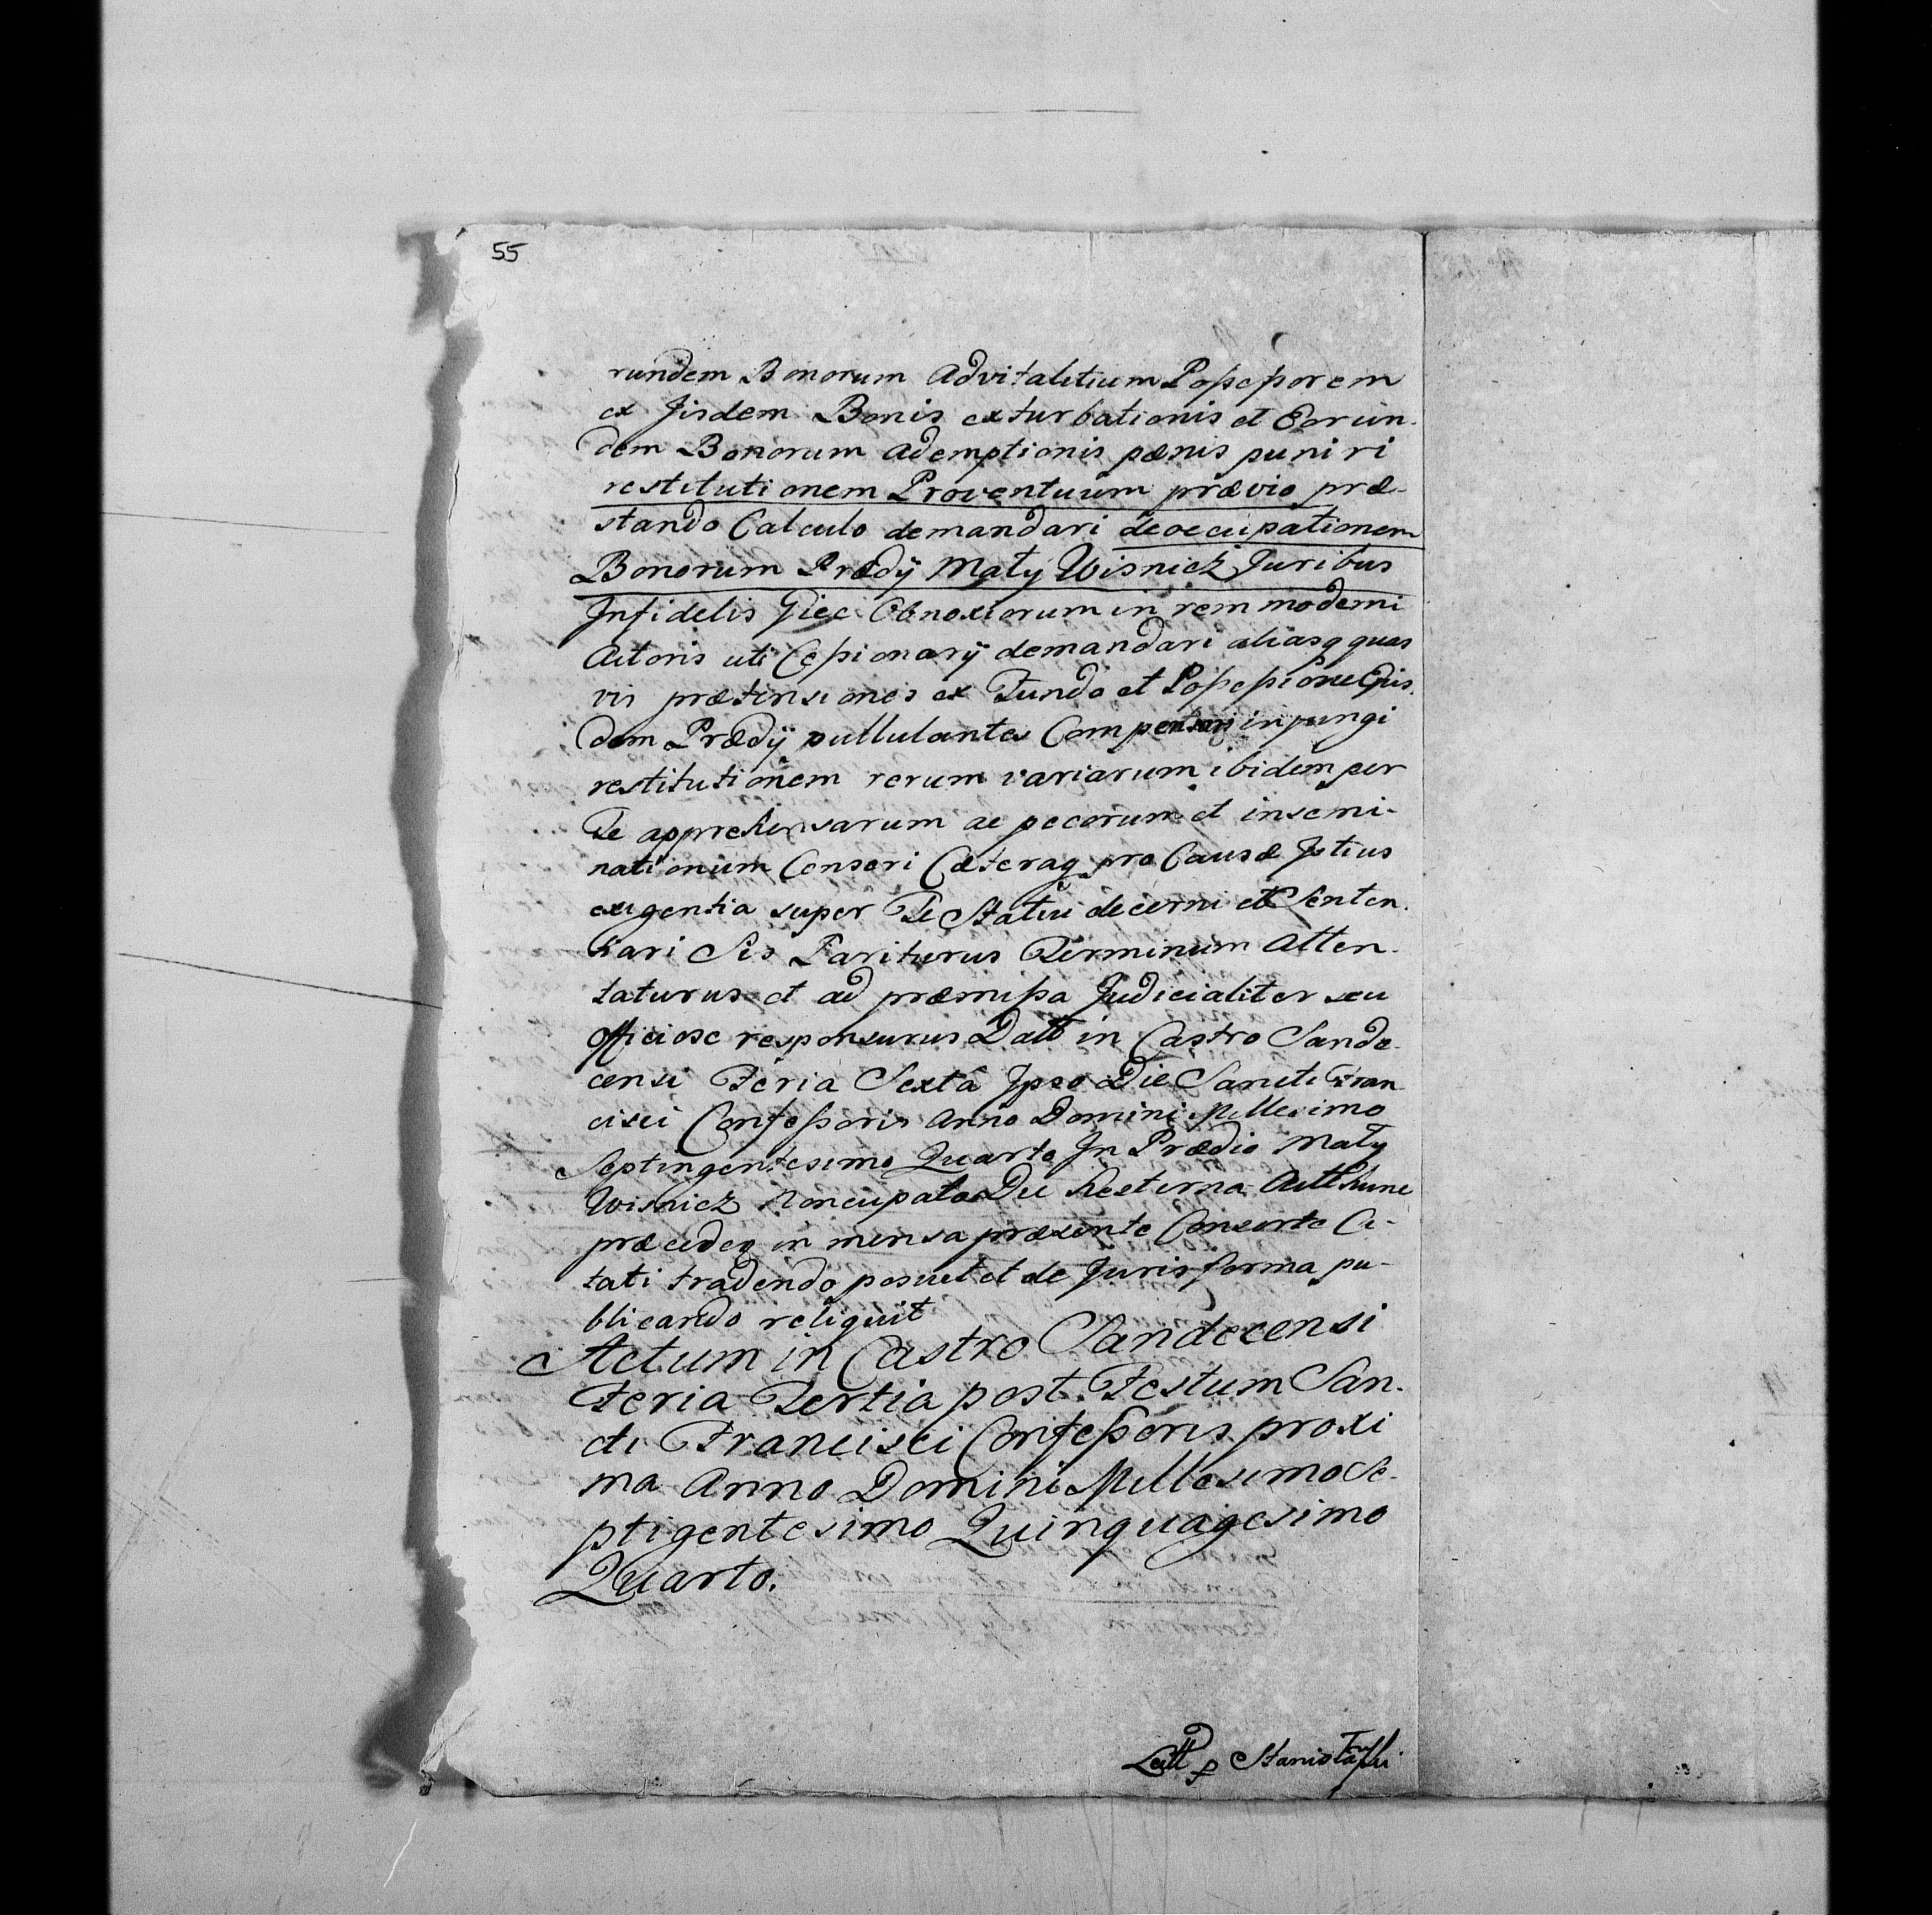 55
rundem Bonorum Advitalitium Possessorem
ex Jisdem Bonis exturbationis et Eorun-
dem Bonorum ademptionis pœnis puniri
restitutionem Proventuum prævio præ-
stando Calculo demandari deoccupationem
Bonorum Prædij Mały Wisnicz Juribus
Infidelis Giec Obnoxiorum in rem moderni
Actoris uti Cessionarij demandari aliasq quas
vis prætensiones ex Fundo et Possessione Ejus-
dem Prædij pullulantes Compensari injungi
restitutionem rerum variarum ibidem per
Te apprehensarum ac pecorum et insemi-
nationum Censeri Cæteraq pro Causæ Istius
exigentia super Te Statui decerni et Senten-
tiari Sis Pariturus Terminum Atten-
taturus et ad præmissa Judicialiter seu
Officiose responsurus Datt in Castro Sande-
censi Feria Sexta Ipso Die Sancti Fran
cisci Confessoris Anno Domini Millesimo
Septingentesimo Quarto In Prædio Mały
Wisnicz Noncupato Die hesterna Actt hunc
præceden in mensa præsente Consorte Ci-
tati tradendo posuit et de Juris forma pu-
blicando reliquit
Actum in Castro Sandecensi
Feria Tertia post Festum San-
cti Francisci Confessoris proxi
ma Anno Domini Millesimo Se-
ptigentesimo Quinquagesimo
Quarto.
Lectt p